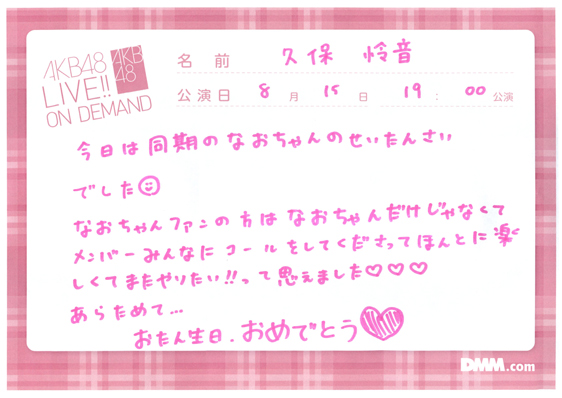 AKB48
LIVE!!
ON DEMAND
AKB
48
名前 久保 怜音
公演日 8月 15日 19:00公演
今日は同期のなおちゃんのせいたんさい
でした
なおちゃんファンの方はなおちゃんだけじゃなくて
メンバーみんなにコールをしてくださってほんとに楽
しくてまたやりたい!!って思えました♡♡♡
あらためて...
おたん生日.おめでとう♡
DMM.com